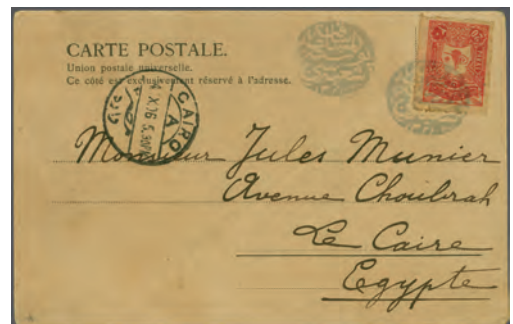 CARTE POSTALE.
Union postale universelle.
Ce côté est exclusivement réservé à l'adresse.
CAIRO
A
X.06 5.30
Monsieur Jules Munier
Avenue Choubrah
Le Caire
Egypte